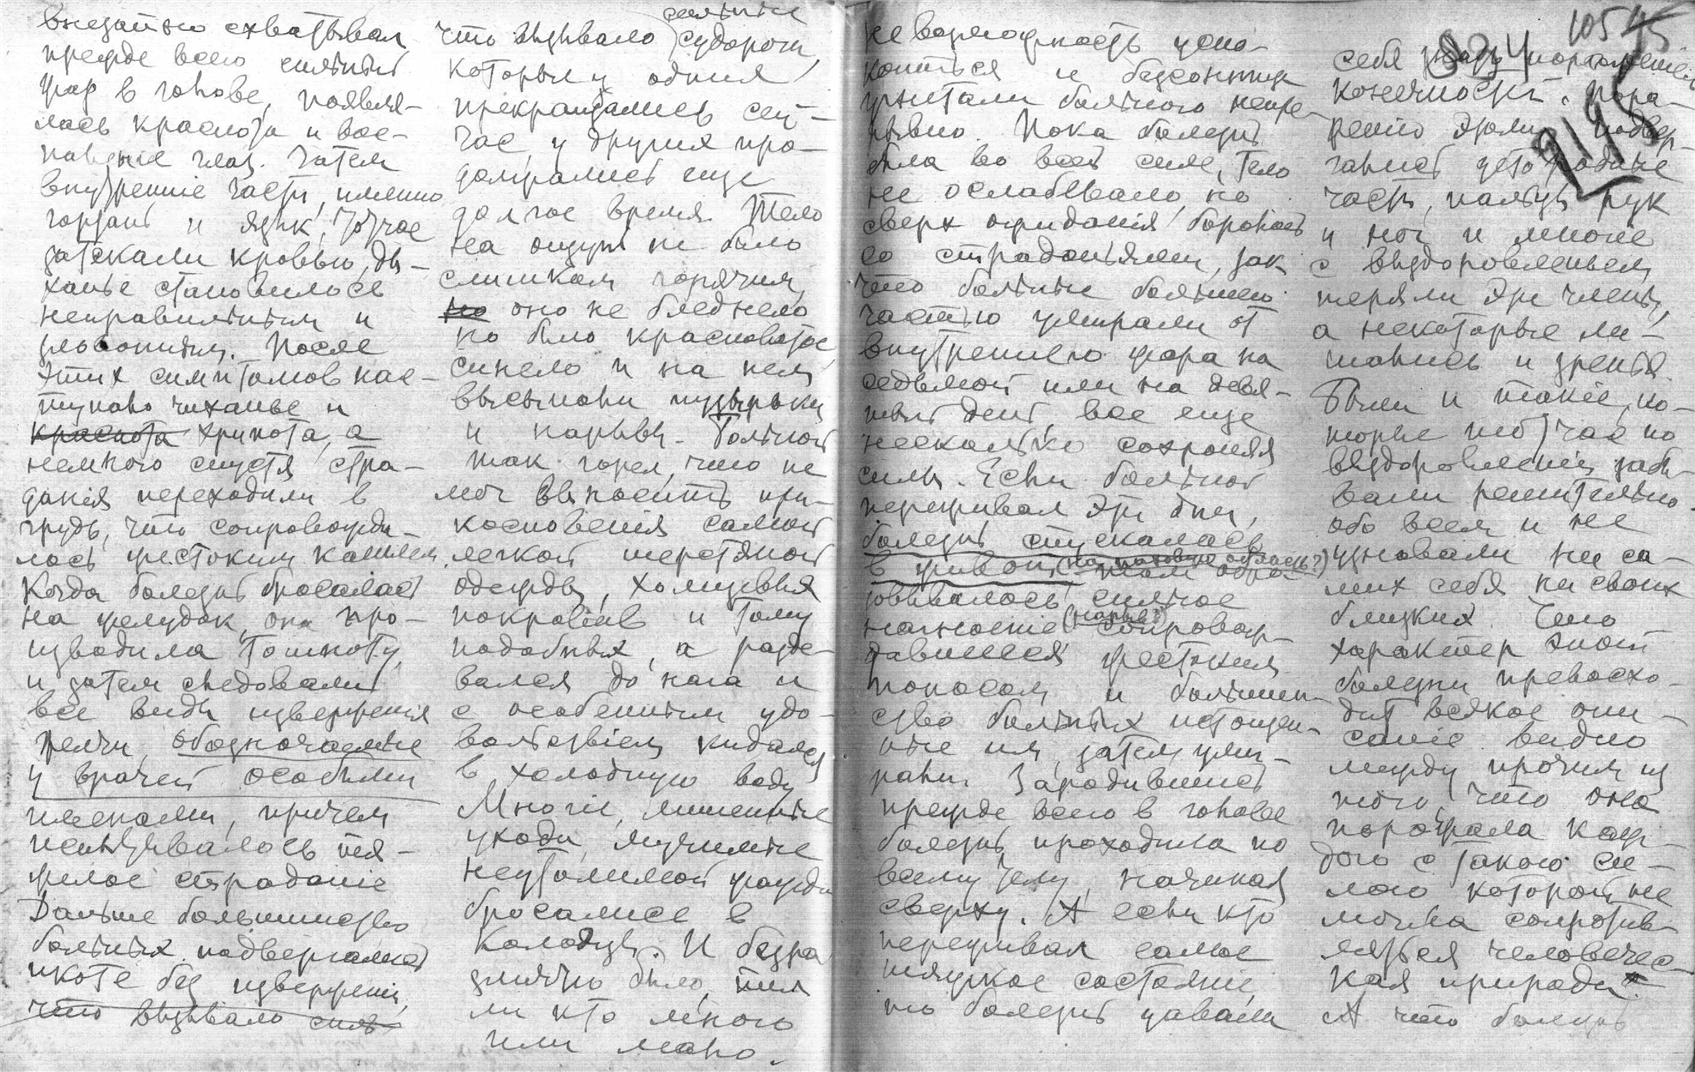 внезапно схватывал
прежде всего сильный
жар в голове, появля-
лась краснота и вос-
паленiе глаз. Затем
внутреннiе части, именно
гортань и язык, тотчас
затекали кровью, ды-
ханье становилось
неправильным и
зловонным. После
этих симптомов нас-
тупало чиханье и
краснота хрипота, а
немного спустя стра-
данiя переходили в
грудь, что сопровожда-
лось жестоким кашлем.
Когда болезнь бросалась
на желудок, она про-
изводила тошноту,
и затем следовали
все виды изверженiя
желчи, обозначаемые
у врачей особыми
, причем
испытывалось тя-
желое страданiе
Дальше большинство
больных подвергалось
икоте без изверженiй,
что вызывало силь-
сильные
что вызывало судороги,
которые у одних
прекращались сей-
час, у других про-
должались еще
долгое время. Тело
на ощупь не было
слишком горячим,
но оно не бледнело
но было красноватое,
синело и на нем
высыпали пузырьки
и нарывы. Больной
так горел, что не
мог выносить при-
косновенiя самой
легкой шерстяной
одежды, холщевых
покровов и тому
подобных, а разде-
вался до нага и
с особенным удо-
вольствiем кидался
в холодную воду
Многiе, лишенные
ухода, мучимые
неутолимой жаждой
бросались в
колодцы. И безра
злично было, пил
ли кто много
или мало.
невозможность успо-
коиться и бессонница
угнетали больного непре-
рывно. Пока болезнь
была во всей силе, тело
не ослабевало, но
сверх ожиданiя боролось
со страданьями, так
что больные большею
частью умирали от
внутреннего жара на
седьмой или на девя-
тый день, все еще
несколько сохраняя
силы. Если больной
переживал эти дни,
болезнь спускалась
в живот, (на паховую область?)
там обра-
зовывалось сильное
нагноенiе (нарыв?) сопровож-
давшееся жестоким
поносом и большин-
ство больных истощен-
ные им, затем уми-
рали. Зародившись
прежде всего в голове
болезнь проходила по
всему телу, начиная
сверху. А если кто
переживал самое
тяжкое состоянiе,
то болезнь давала
1054
834
2195
себя пораженiем
конечностей.
подвер-
гались детородные
части, пальцы рук
и ног и многiе
с выздоровленьем
теряли эти члены,
а некоторые ли-
шались и зренья
Были и такiе, ко-
торые тотчас по
выздоровленiи забы-
вали решительно
обо всем и не
узнавали ни са-
мих себя ни своих
близких. Что
характер этой
болезни превосхо-
дит всякое опи-
санiе видно
между прочим из
того, что она
поражала каж-
дого с такою си-
лою которой не
могла сопротив-
ляться человечес-
кая природа.
А что болезнь